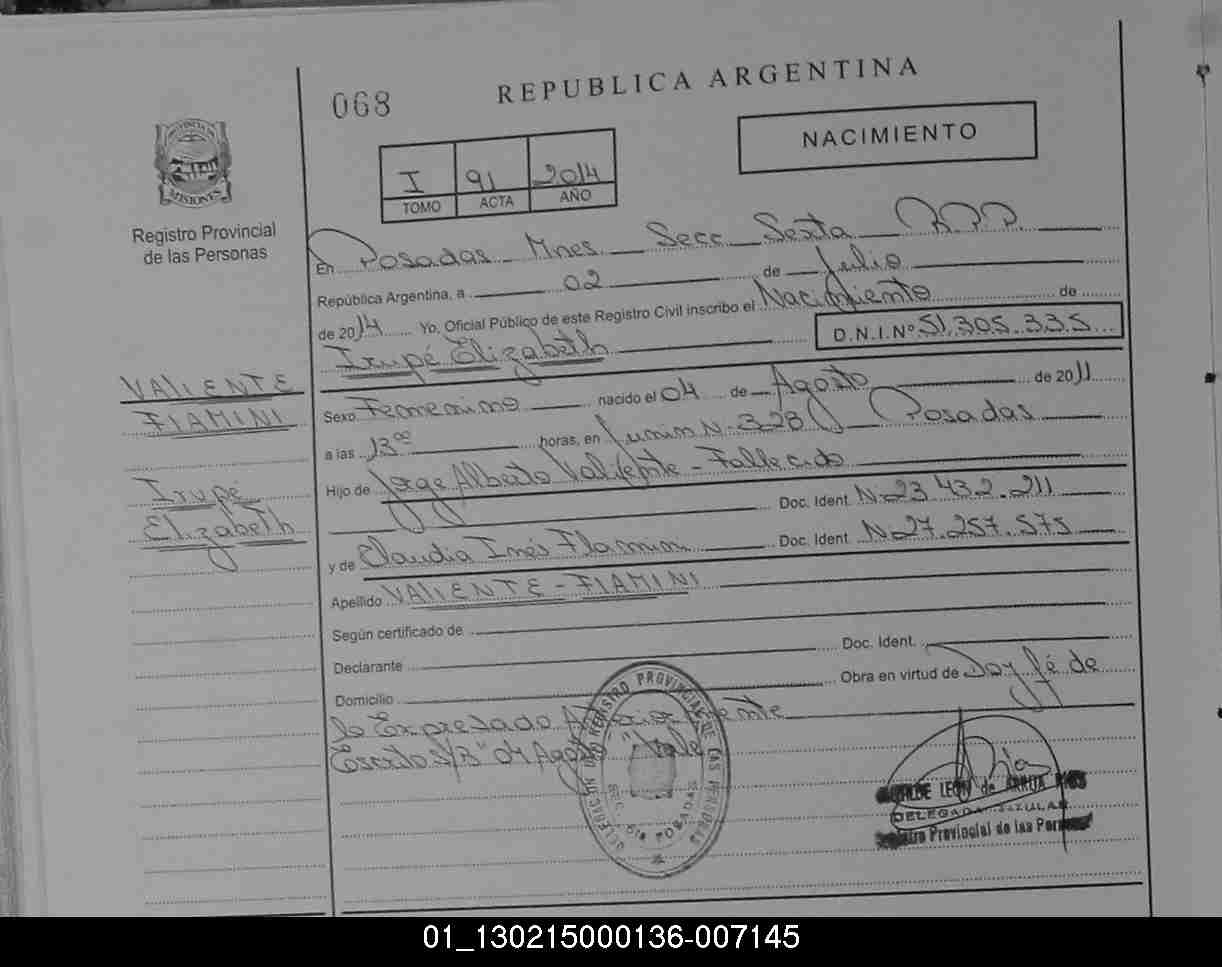 068
REPUBLICA ARGENTINA
NACIMIENTO
PROVINCIA DE
MISIONES
I 91 2014
TOMO ACTA AÑO
Registro Provincial
de las Personas
En Posadas Mnes Secc Sexta R.P.P.
República Argentina, a 02 de Julio
de 2014 Yo, Oficial Público de este Registro Civil inscribo el Nacimiento de
Irupé Elizabeth D.N.I.Nº 51.305.335
VALIENTE
FIAMINI
Irupé
Elizabeth
Sexo Femenino nacido el 04 de Agosto de 2011
a las 13 00 horas, en Junin Nº 328 Posadas
Hijo de Jorge Alberto Valiente - Fallecido
Doc. Ident. Nº 23.432.211
y de Claudia Inés Fiamini Doc. Ident. Nº 27.257.575
Apellido VALIENTE - FIAMINI
Según certificado de
Declarante Doc. Ident.
Domicilio Obra en virtud de Doy fé de
lo Expresado Anteriormente
Escrito S/B "04 Agosto" "Vale"
DELEGACION REGISTRO PROVINCIAL DE LAS PERSONAS
SEC. 6ta POSADAS
LEON de ARRUA RIOS
DELEGADA TITULAR
Registro Provincial de las Personas
01_130215000136-007145